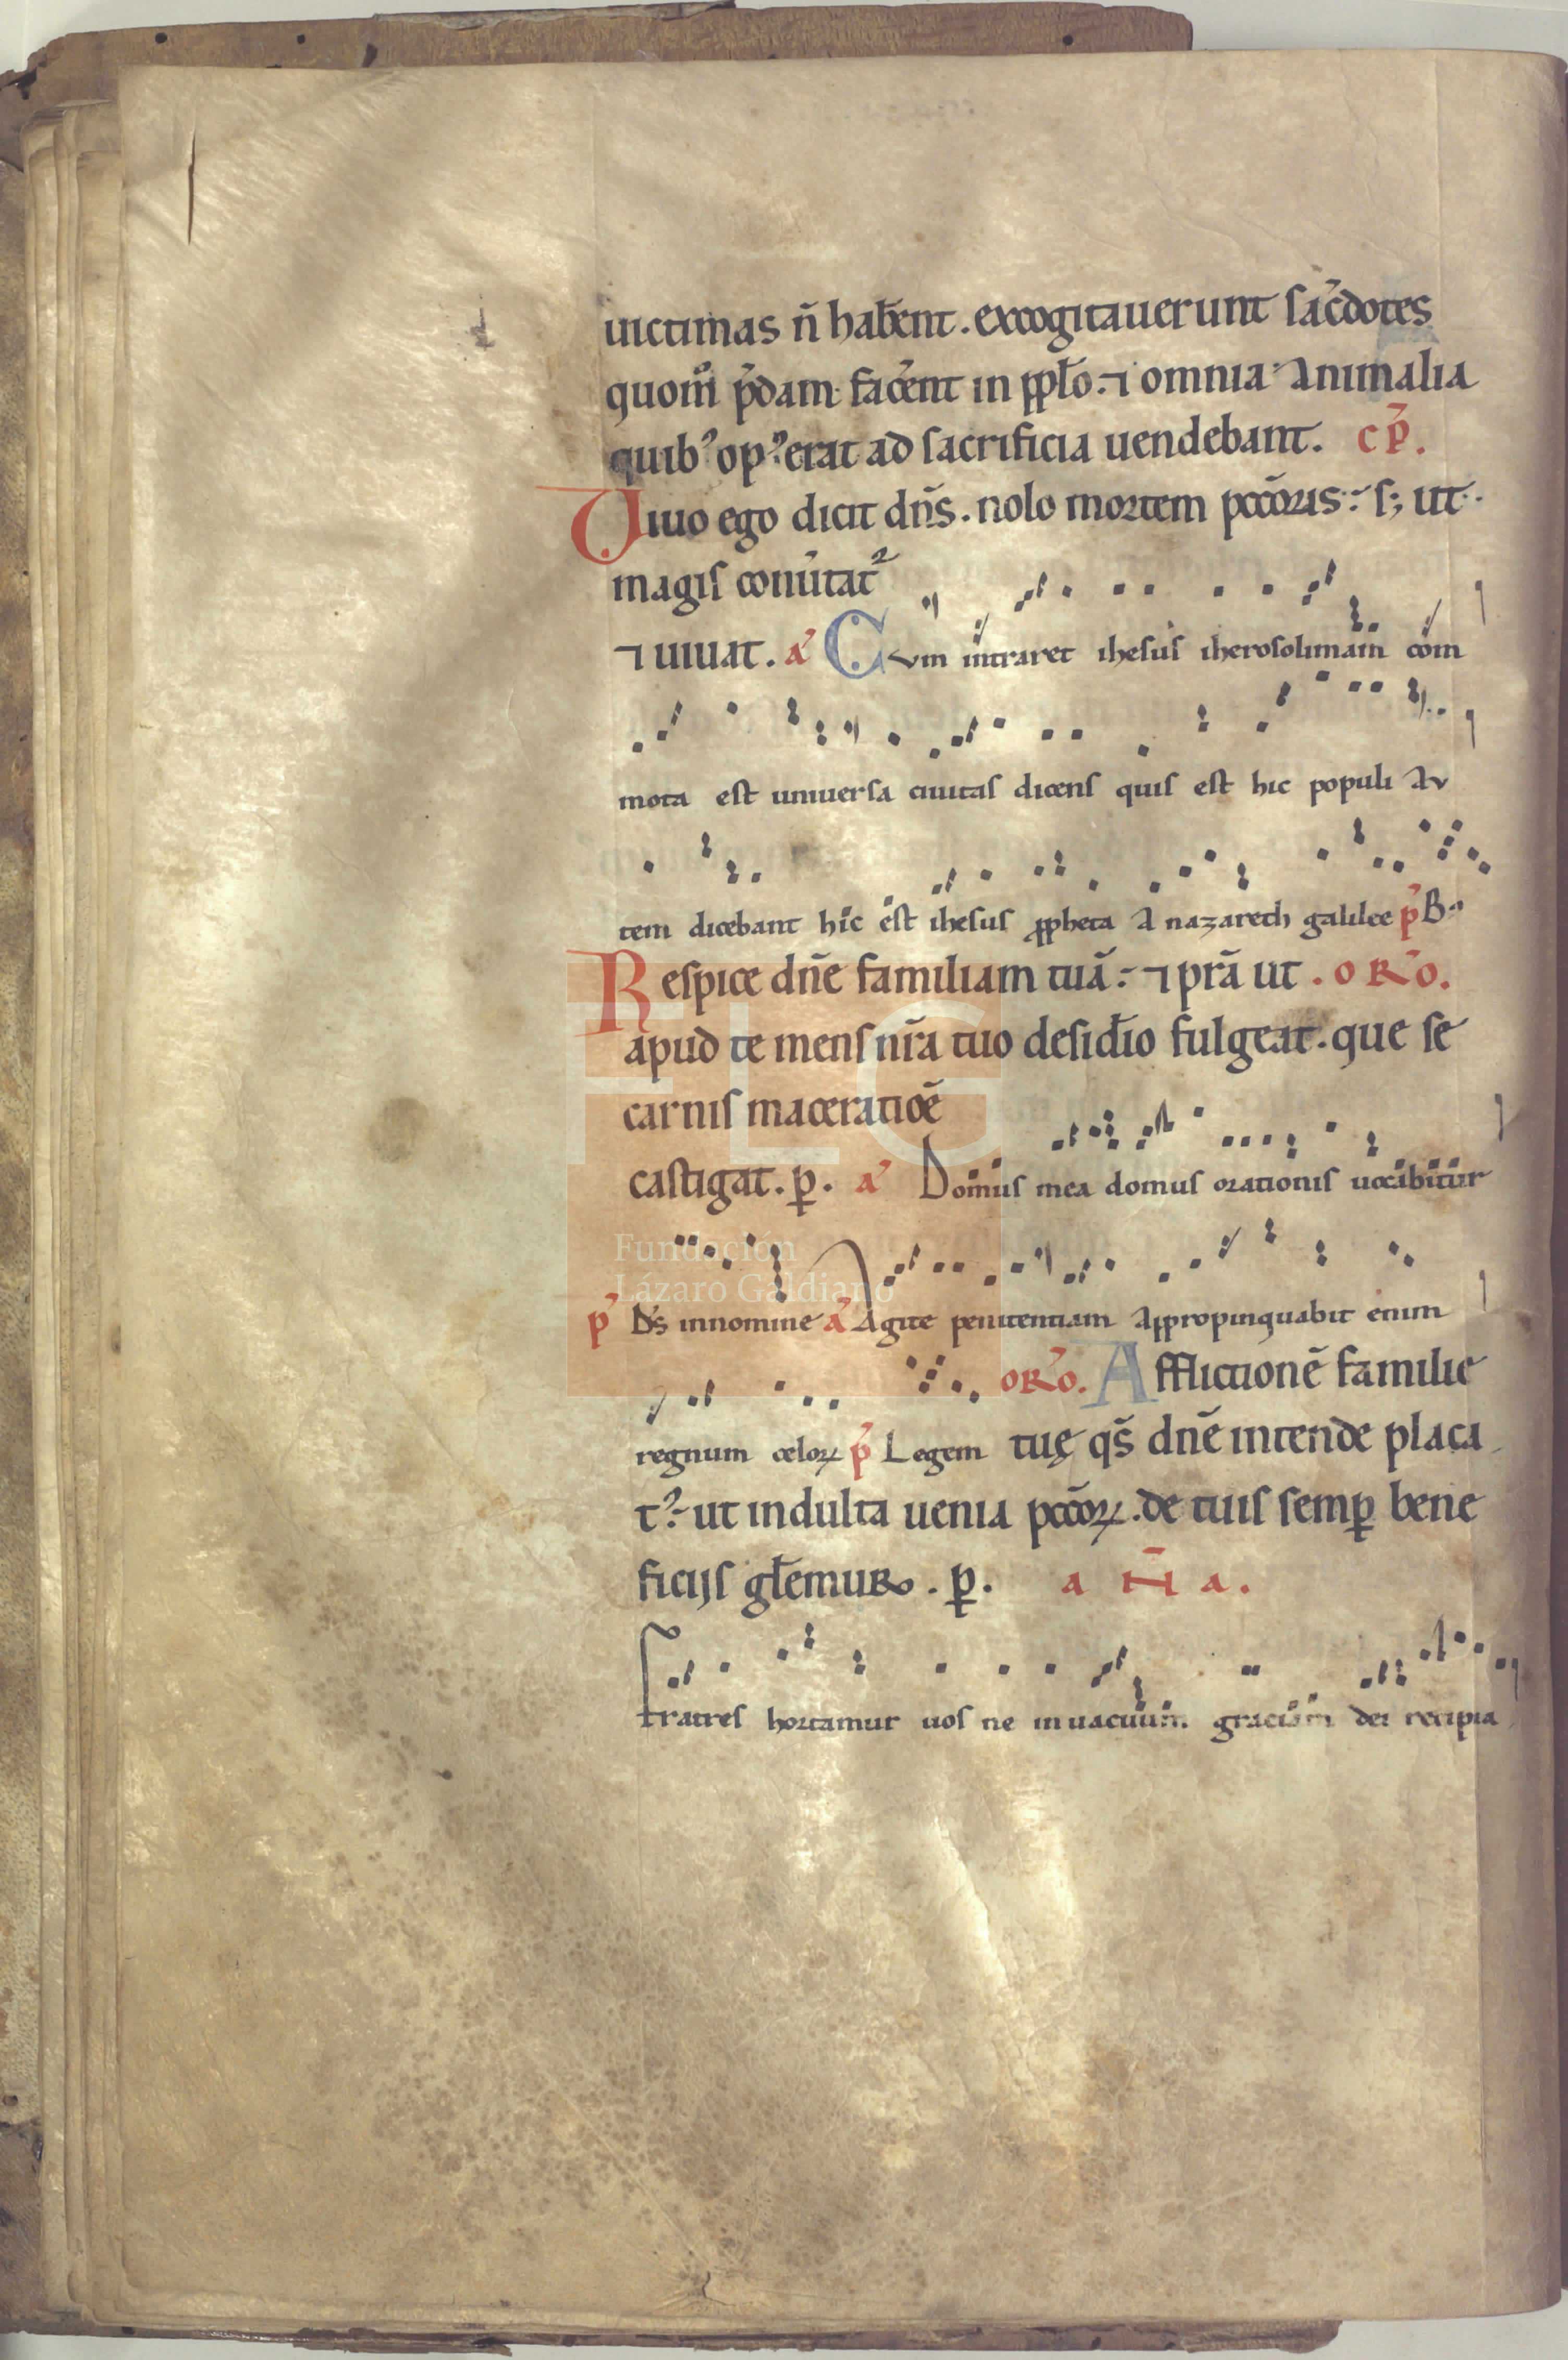 uictimas n̄ hab̄ent . excogitauerunt sac̄dotes
quom̄ p̄dam fac̄ent in pp̄lo . ⁊ omnia animalia
quib᾽ op᾽ erat ad sacrificia uendebant . c p̄ .
Uiuo ego dicit dn̄s . nolo mortem pcc̄oris : s; ut
magis conu̅tat᾽
⁊ uiuat . a᾽ Cvm intraret ihesus iherosolimam com
mota est uniuersa ciuitas dicens quis est hic populi Av
tem dicebant hic est ihesus ꝓpheta A nazareth galilee p᾽ B
Respice dn̄e familiam tuā : ⁊ pr̄a ut . oRo .
apud te mens nr̄a tuo desid̄io fulgeat . que se
carnis maceratioē
castigat . p̱ . a᾽ Domus mea domus orationis uocabitur
p᾽ D̄s innomine a᾽ Agite penitentiam Appropinquabit enim
oRo . Afflictionē familie
regnum celoꝝ p᾽ Legem tuę qs̄ dn̄e intende placa
t᾽ : ut indulta uenia pcc̄oꝝ . de tuis semꝑ bene
ficijs gl̄emur . ꝑ . a Ñ a .
Fratres hortamur uos ne inuacuum graciam dei recipia
Fundación
Lázaro Galdiano
FLG